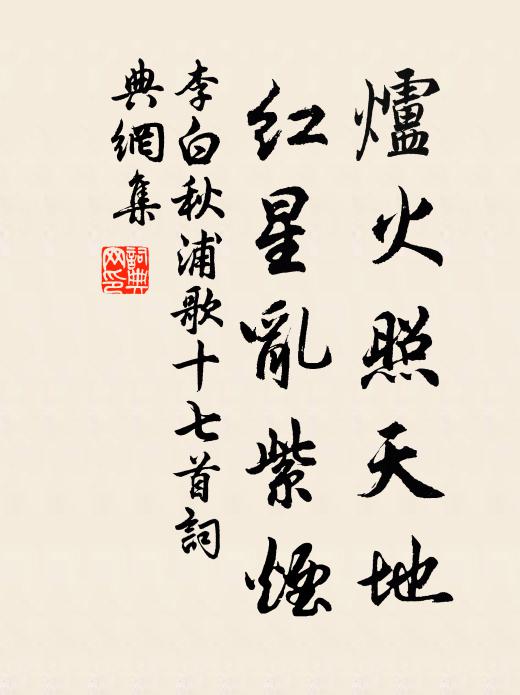 爐火照天地
紅星亂紫煙
李白秋浦歌十七首詞
典網集
詞典網印